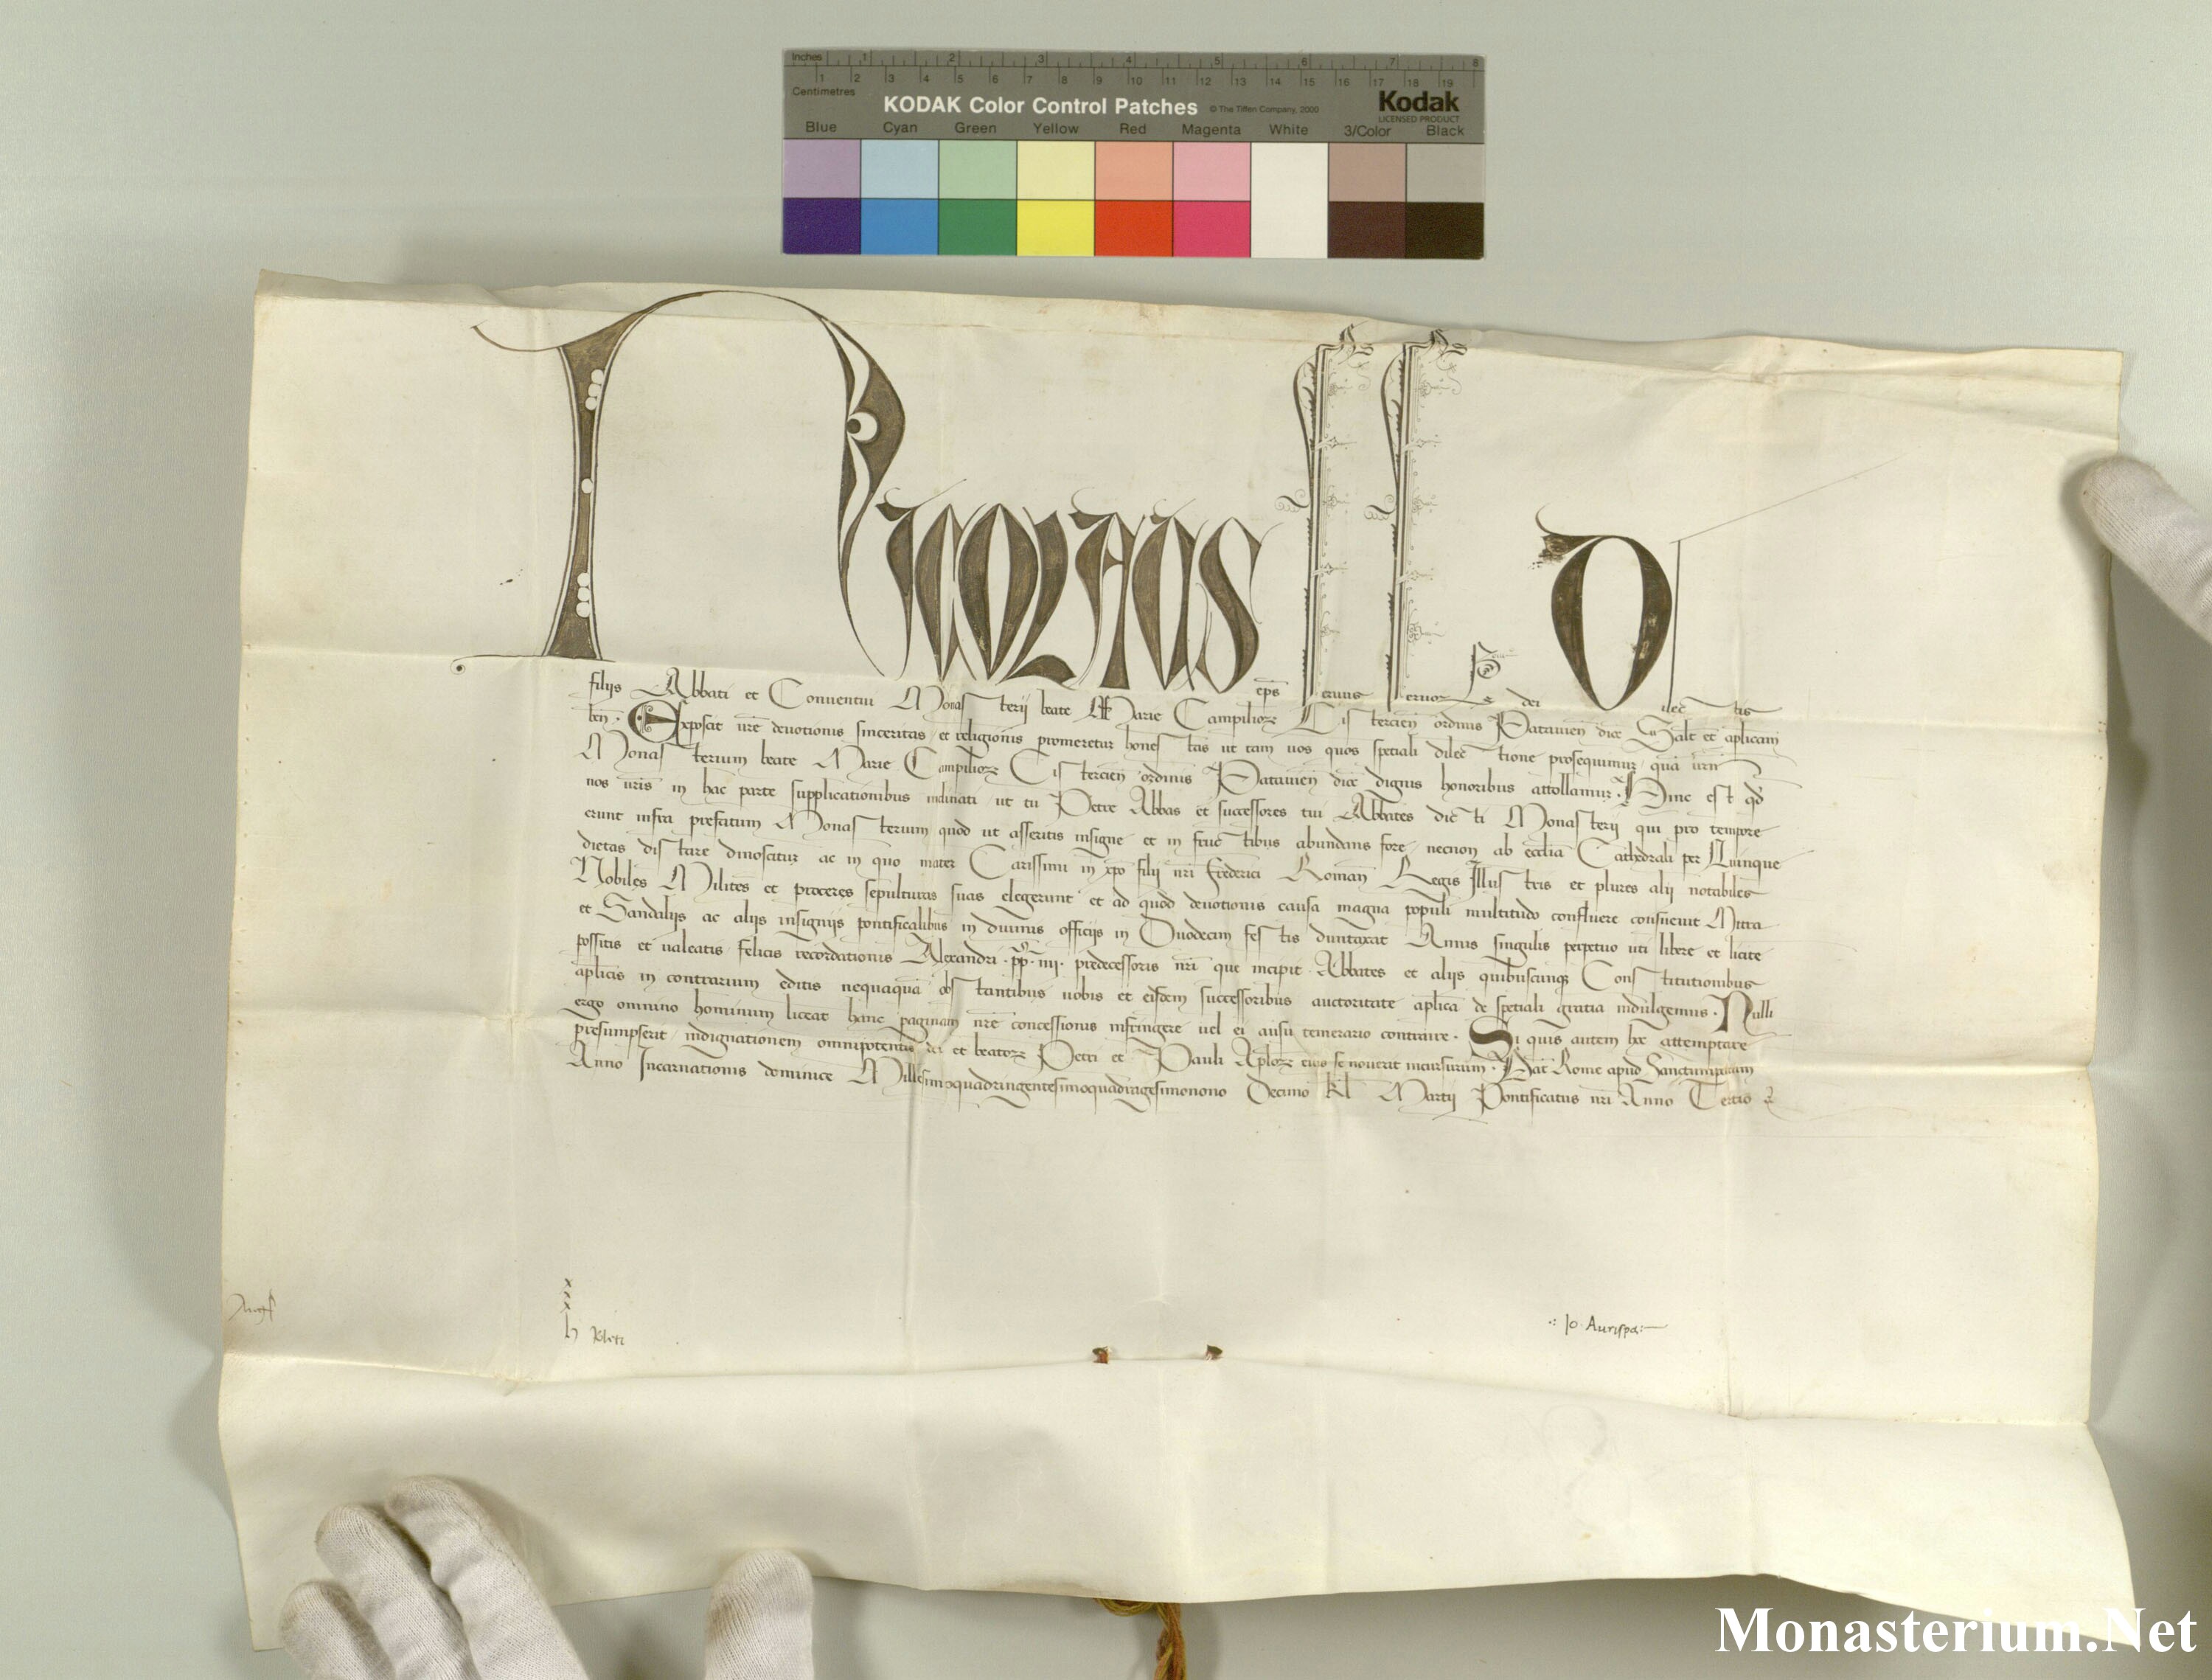 Inches 1 2 3 4 5 6 7 8
1 2 3 4 5 6 7 8 9 10 11 12 13 14 15 16 17 18 19
Centimetres
KODAK Color Control Patches © The Tiffen Company, 2000 Kodak
LICENSED PRODUCT
Blue Cyan Green Yellow Red Magenta White 3/Color Black
Nicolaus eps seruus seruor dei Dilectis
filijs Abbati et Conuentui Monasterij beate Marie Campilior Cistercien ordinis Patauien dioc Salt et aplicam
ben. Exposcit vre deuotionis sinceritas et religionis promeretur honestas ut tam uos quos speciali dilectione prosequimur qua vrm
Monasterium beate Marie Campilior Cistercien ordinis Patauien dioc dignis honoribus attollamur. Hinc est qd
nos vris in hac parte supplicationibus inclinati ut tu Petre Abbas et successores tui Abbates dicti Monasterij qui pro tempore
erunt infra prefatum Monasterium quod ut asseritis insigne et in fructibus abundans fore necnon ab ecclia Cathedrali per Quinque
dietas distare dinoscitur ac in quo mater Carissimi in xpo filij nri Frederici Roman Regis Illustris et plures alij notabiles
Nobiles Milites et proceres sepulturas suas elegerunt et ad quod deuotionis causa magna populi multitudo confluere consueuit Mitra
et Sandalijs ac alijs insignijs pontificalibus in diuinis officijs in Duodecim festis duntaxat Annis singulis perpetuo uti libere et licite
possitis et ualeatis felicis recordationis Alexandri .pp. iiij. predecessoris nri que incipit Abbates et alijs quibuscunq Constitutionibus
aplicis in contrarium editis nequaqua obstantibus uobis et eisdem successoribus auctoritate aplica de speciali gratia indulgemus. Nulli
ergo omnino hominum liceat hanc paginam nre concessionis infringere uel ei ausu temerario contraire. Si quis autem hoc attemptare
presumpserit indignationem omnipotentis dei et beator Petri et Pauli Aplor eius se nouerit incursurum. Dat Rome apud Sanctumpetrum
Anno Incarnationis dominice Millesimoquadringentesimoquadragesimonono Decimo kl Martij Pontificatus nri Anno Tertio
x
x
x
h
Jo. Aurispa
Monasterium.Net